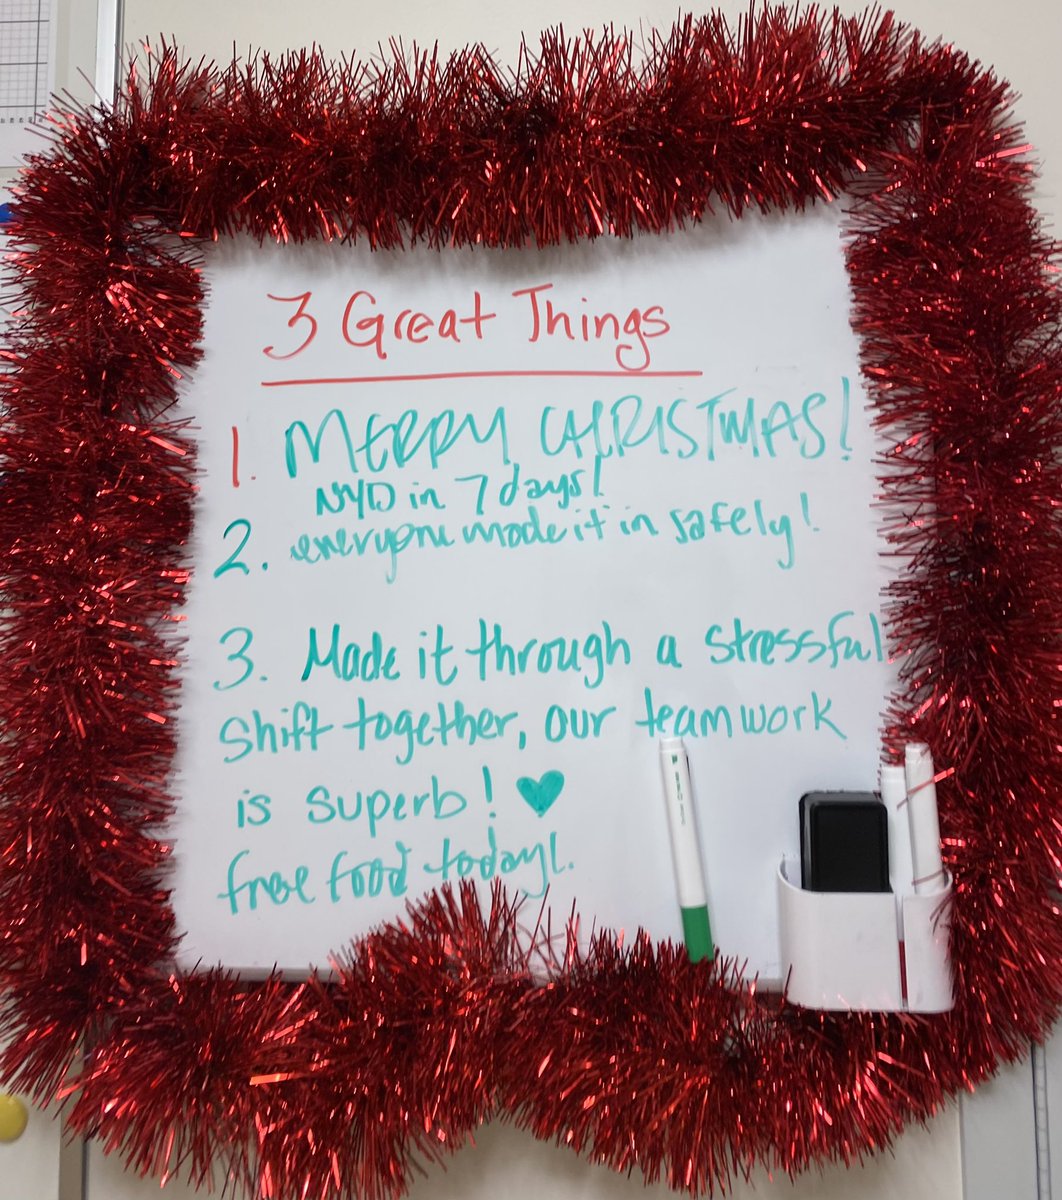 3 Great Things
1. MERRY CHRISTMAS!
NYD in 7 days!
2. everyone made it in safely!
3. Made it through a stressful
shift together, our teamwork
is superb! ♥
free food today!.